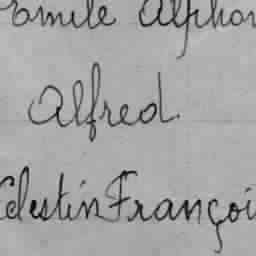 Emile Alphon
Alfred.
Célestin Françoi